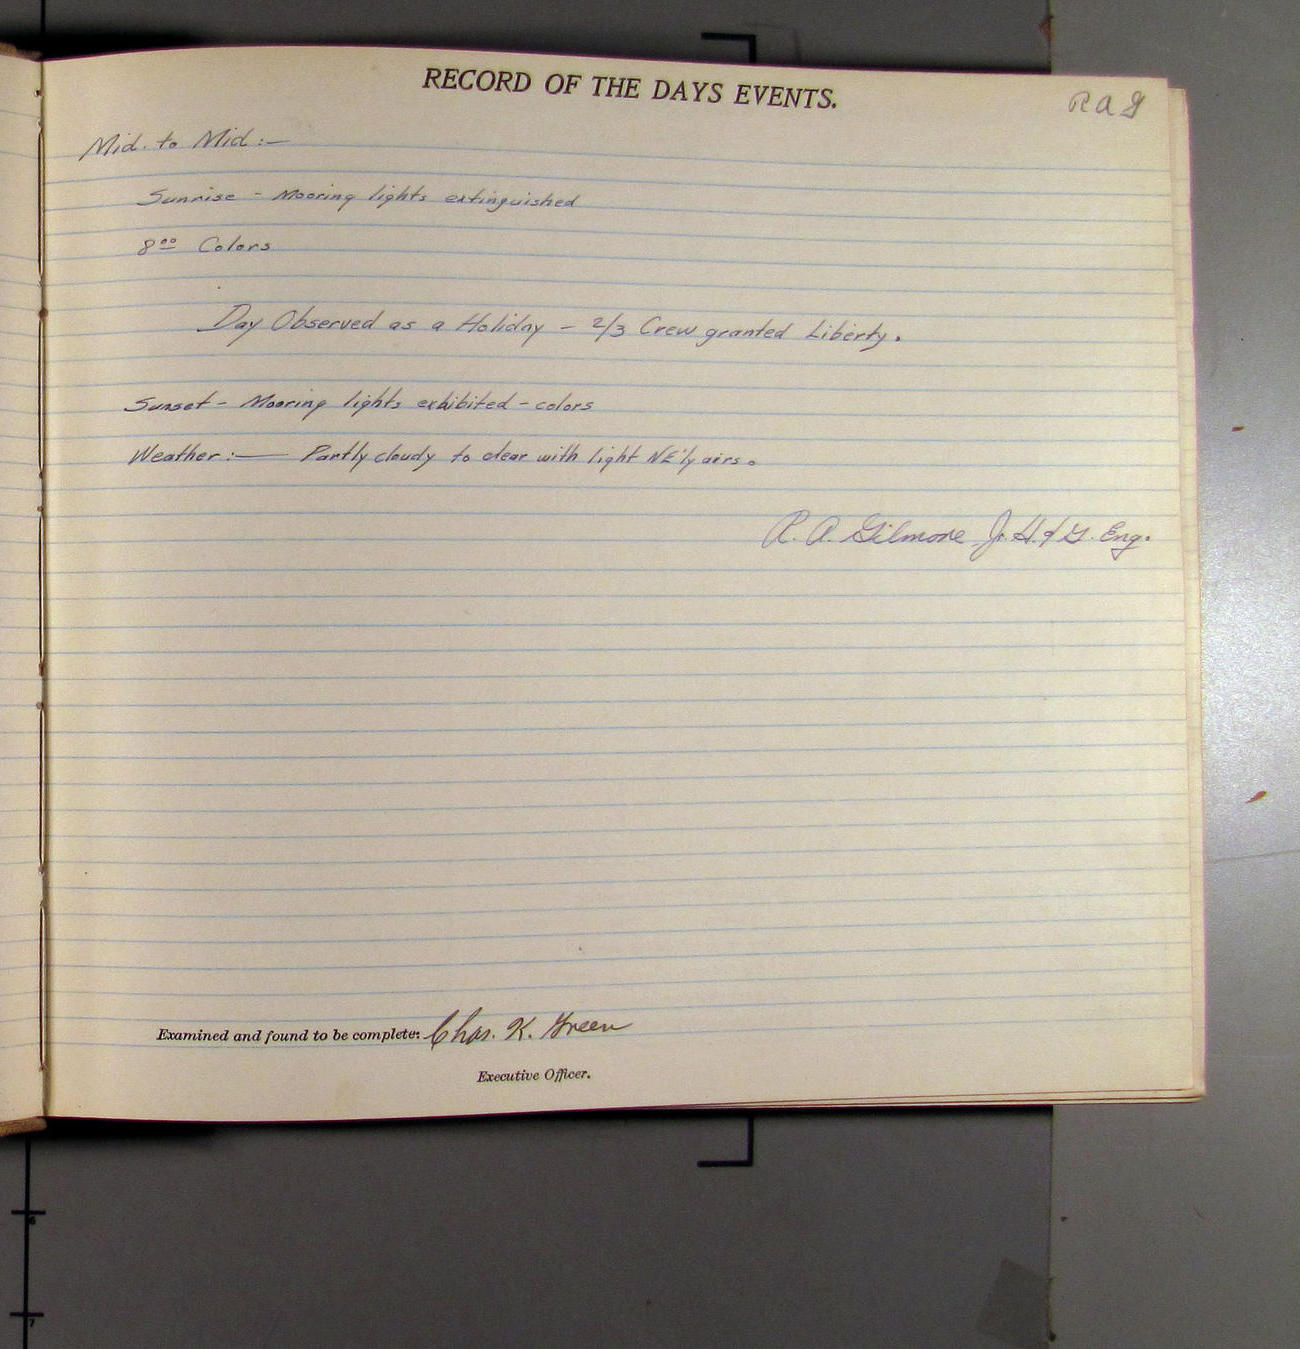 RECORD OF THE DAYS EVENTS.
R A G
Mid. to Mid:—
Sunrise - Mooring lights extinguished
8⁰⁰ Colors
Day Observed as a Holiday - 2/3 Crew granted Liberty.
Sunset - Mooring lights exhibited - colors
Weather:— Partly cloudy to clear with light NE'ly airs.
R. A. Gilmore Jr. H. & G. Eng.
Examined and found to be complete: Chas. K. Green
Executive Officer.
6
7